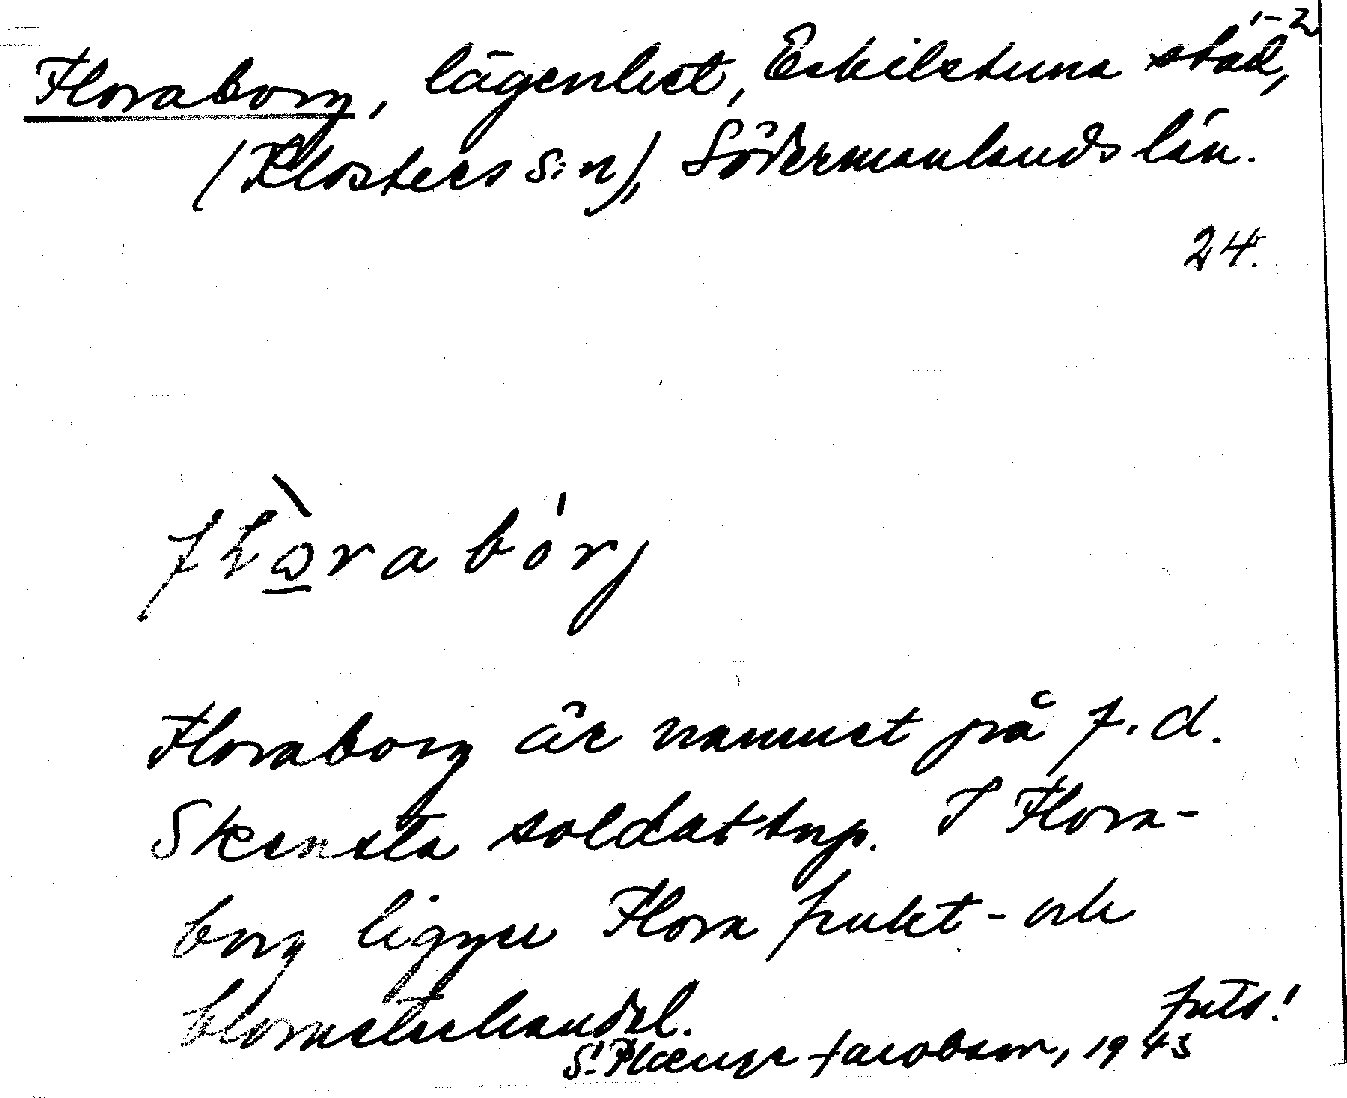 1-2
Floraborg, lägenhet, Eskilstuna stad,
(Klosters s:n), Södermanlands län.
24.
Floraborg är namnet på f.d.
Skensta soldattrp. I Flora-
borg ligger Flora frukt- och
blomsterhandel.
forts!
Jacobson, 1943